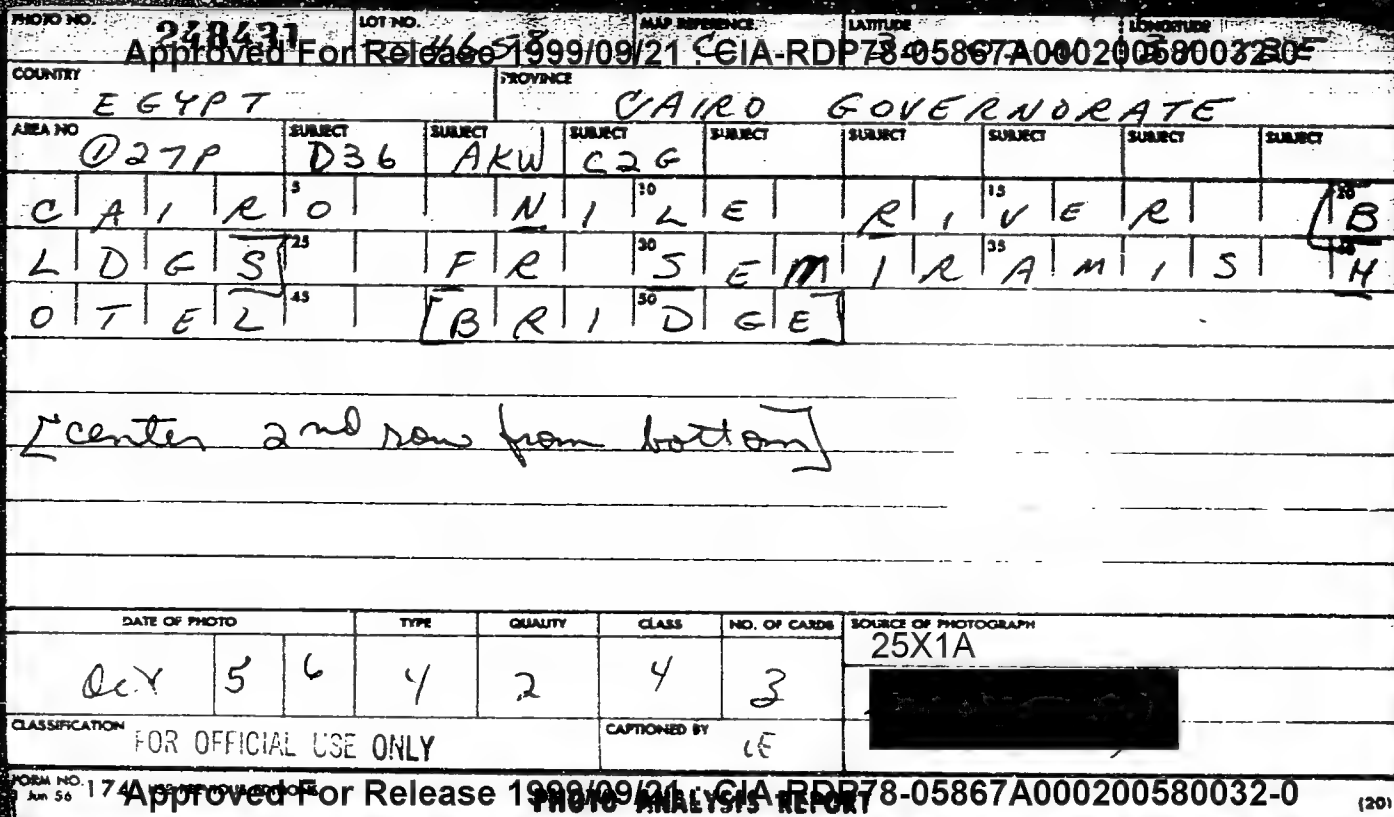 PHOTO NO. 248431 LOT NO. MAP REFERENCE LATITUDE LONGITUDE
Approved For Release 1999/09/21 : CIA-RDP78-05867A000200580032-0
COUNTRY EGYPT PROVINCE CAIRO GOVERNORATE
AREA NO ①27P SUBJECT D36 SUBJECT AKW SUBJECT C2G SUBJECT SUBJECT SUBJECT SUBJECT SUBJECT
CAIRO NILE RIVER [B
LDGS] FR SEMIRAMIS H
OTEL [BRIDGE]
[center 2nd row from bottom]
DATE OF PHOTO TYPE QUALITY CLASS NO. OF CARDS SOURCE OF PHOTOGRAPH
25X1A
Oct 5 6 4 2 4 3
CLASSIFICATION FOR OFFICIAL USE ONLY CAPTIONED BY
FORM NO. 174
1 Jun 56
Approved For Release 1999/09/21 : CIA-RDP78-05867A000200580032-0
PHOTO ANALYSIS REPORT (20)